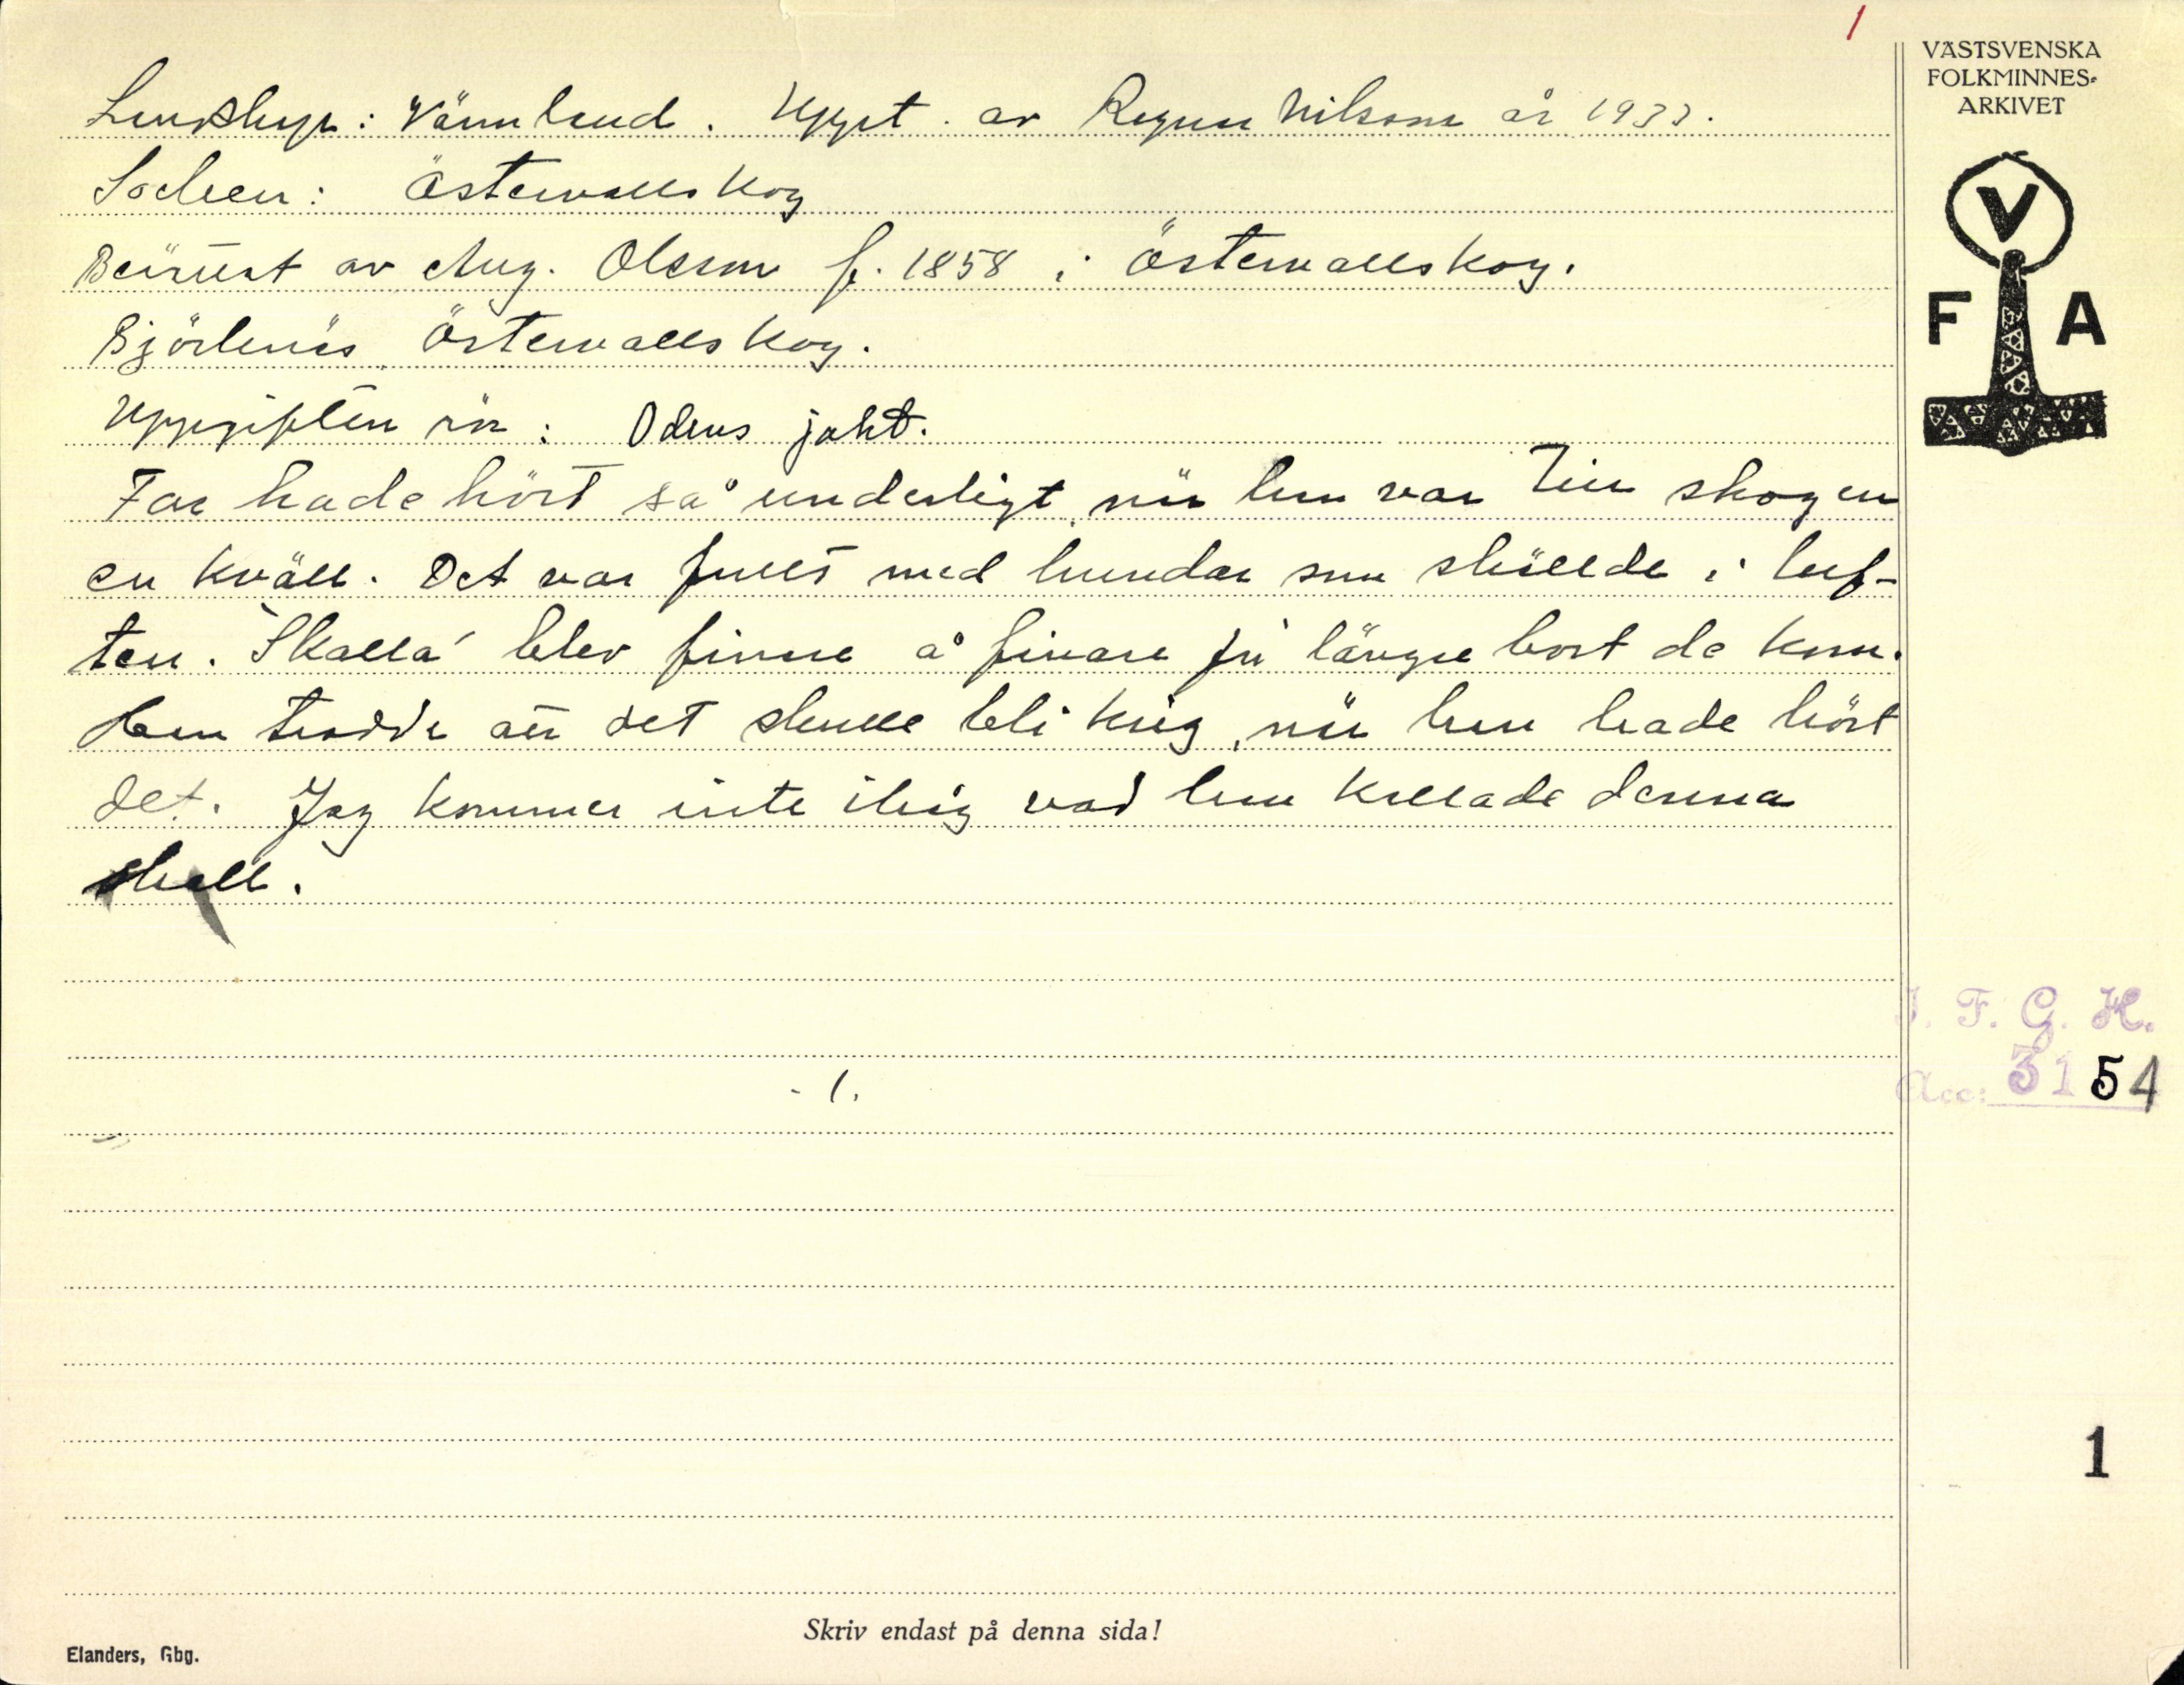 1
VÄSTSVENSKA
FOLKMINNES-
ARKIVET
V
F A
Landskap: Värmland. Uppt. av Ragnar Nilsson år 1933.
Socken: Östervallskog
Berättat av Aug. Olsson f. 1858 i Östervallskog.
Björlenäs, Östervallskog.
Uppgiften rör: Odens jakt.
Far hade hört så underligt, när han var till skogen
en kväll. Det var fullt med hundar som skällde i luf-
ten. Skalla' blev finare å finare ju längre bort de kom.
Han trodde att det skulle bli krig, när han hade hört
det. Jag kommer inte ihåg vad han kallade denna
skall.
- 1.
I. F. G. H.
Acc: 3154
1
Skriv endast på denna sida!
Elanders, Gbg.